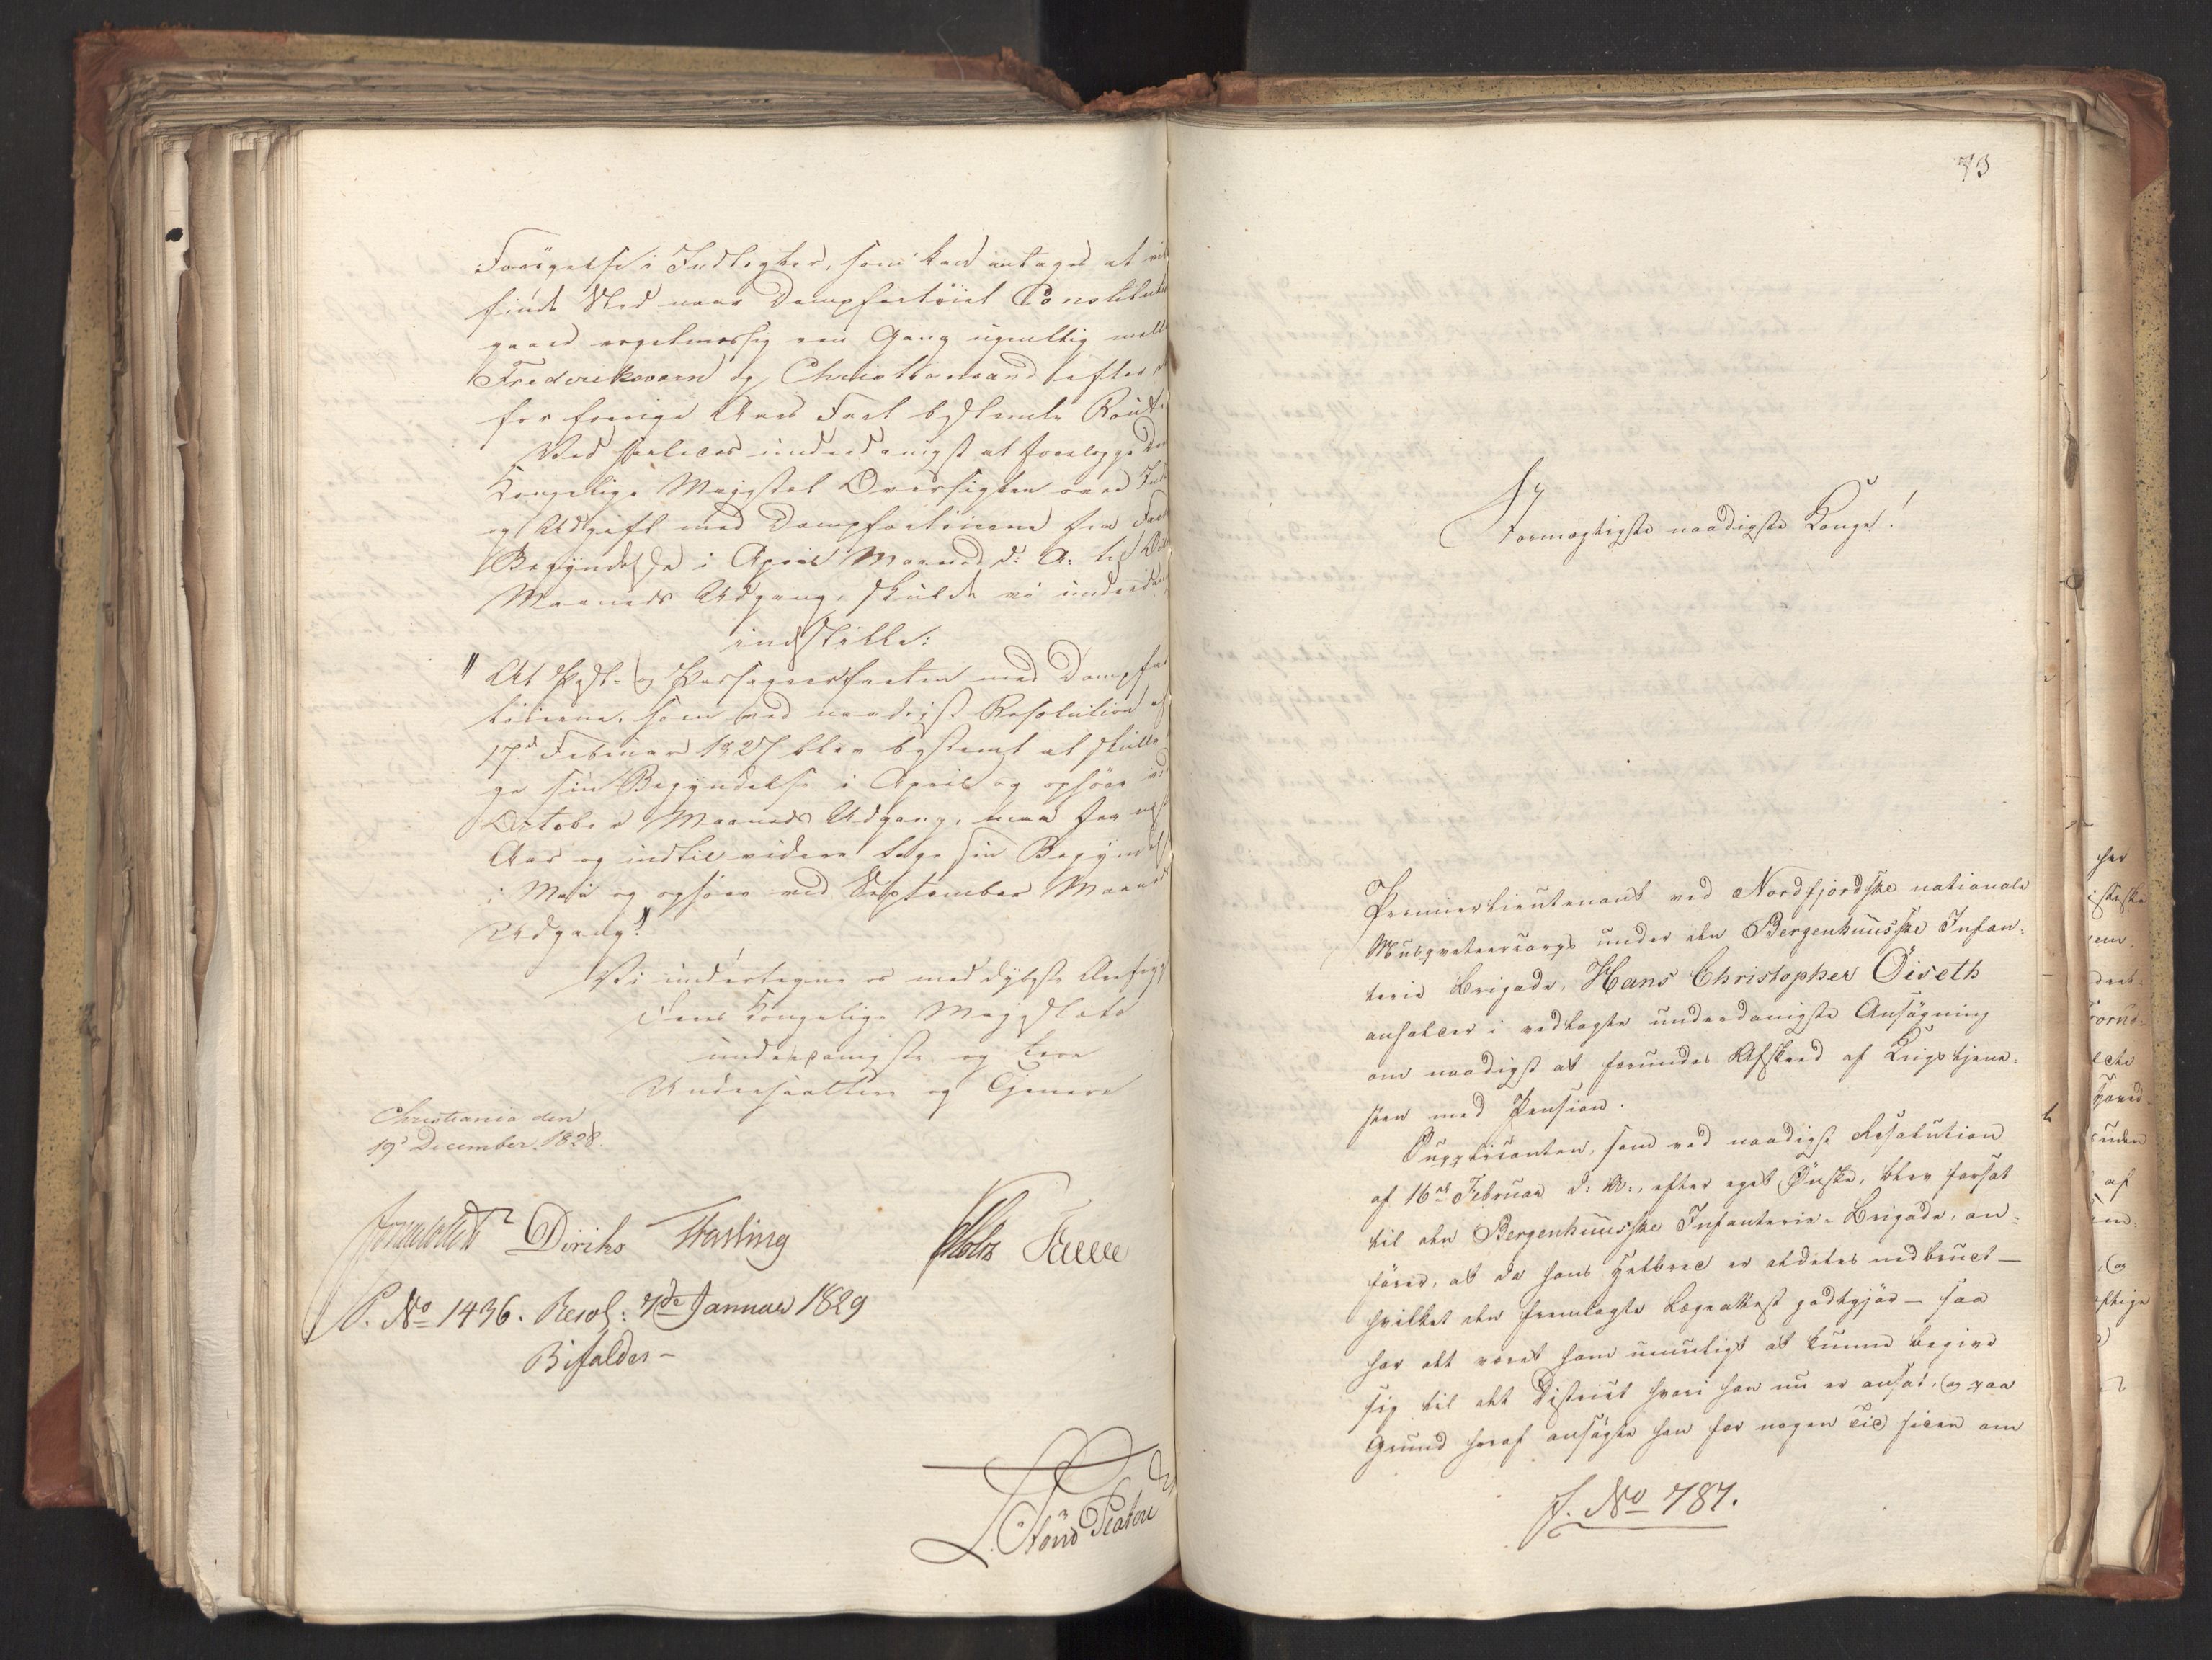 Forøgelse i Indtægter, som kan antages at vil
finde Sted naar Dampfartøiet Constitut
gaaer regelmæssig een Gang ugentlig mell
Frederiksværn og Christiansand efter d
for forrige Aars Fart bestemte Route
Ved saaledes underdanigst at forelægge De
Kongelige Majestæt Oversigten over Ind
og Udgift med Dampfartøierne fra Fart
Begyndelse i April Maaned d: A: til
Maaneds Udgang, skulde vi underd.
indstille:
"At Post- og Passageerfarten med Dampfar
tøierne, som ved naadigst Resolution af
17d Februar 1827 blev bestemt at skulle
ge sin Begyndelse i April og ophøre ved
October Maaneds Udgang, maa fra
Aar og indtil videre tage sin Begyndelse
i Mai og ophøre ved September Maaneds
Udgang."
Vi undertegne os med dybeste Ærefrygt
Deres Kongelige Majestæts
underdanigste og troe
Undersaatter og Tjenere
Christiania den
19d December 1828.
Diriks Fasting Holst
P. No 1436. Resol: 7de Januar 1829
Bifaldes-
73
Stormægtigste naadigste Konge!
Premierlieutenant ved Nordfjordske nationale
Musqveteercorps under den Bergenhuusske Infan-
terie Brigade, Hans Christopher Öiseth
ansøger i vedlagte underdanigste Ansøgning
om naadigst at forundes Afskeed af Krigstjene-
sten med Pension.
Supplicanten, som ved naadigst Resolution
af 16de Februar d: A:, efter eget Ønske, blev forsat
til den Bergenhuusske Infanterie-Brigade, an-
fører, at da hans Helbred er aldeles nedbrudt-
hvilket den fremlagte Lægeattest godtgjør - saa
har det været ham umuligt at kunne begive
sig til det District hvori han nu er ansat, og paa
Grund heraf ansøgte han for nogen Tid siden om
J. No 787.